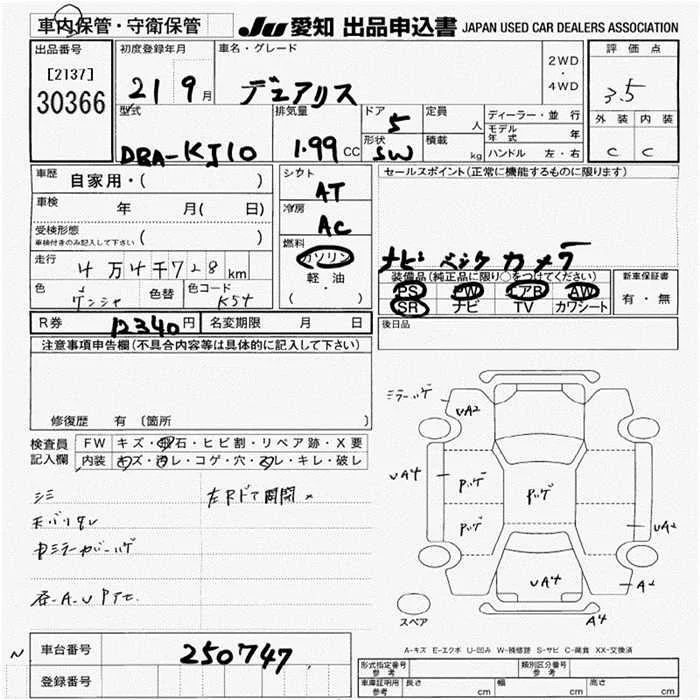 車内保管・守衛保管
JU 愛知 出品申込書 JAPAN USED CAR DEALERS ASSOCIATION
出品番号
[2137]
30366
初度登録年月
21 9月
車名・グレード
デュアリス
2WD
・
4WD
評価点
3.5
外装 内装
C C
型式
DBA-KJ10
排気量
1.99 CC
ドア
5
形状
SW
定員
人
積載
kg
ディーラー・並行
モデル年式 年
ハンドル 左・右
車歴
自家用・( )
車検
年 月( 日)
受検形態
車検付きのみ記入して下さい ( )
走行
4万4千728km
色
色替
色コード
K54
シフト
AT
冷房
AC
燃料
ガソリン
軽油
( ・ )
セールスポイント(正常に機能するものに限ります)
ナビ バック カメラ
装備品(純正品に限り○をつけてください)
PS PW エアB AW
SR ナビ TV カワシート
新車保証書
有・無
R券
12340円
名変期限 月 日
後日品
注意事項申告欄(不具合内容等は具体的に記入して下さい)
修復歴 有 〔箇所 〕
検査員
記入欄
FW キズ・飛石・ヒビ割・リペア跡・X要
内装 キズ・汚レ・コゲ・穴・スレ・キレ・破レ
シミ
左Rドア開閉×
ミラーハゲ
UA2
UA4
ハゲ
ハゲ
ハゲ
UA2
UA4
A2
A4
スペア
A-キズ E-エクボ U-凹み W-補修跡 S-サビ C-腐食 XX-交換済
N
車台番号
250747
登録番号
形式指定番号
参考
類別区分番号
参考
車庫証明用
参考
長さ cm
幅 cm
高さ cm